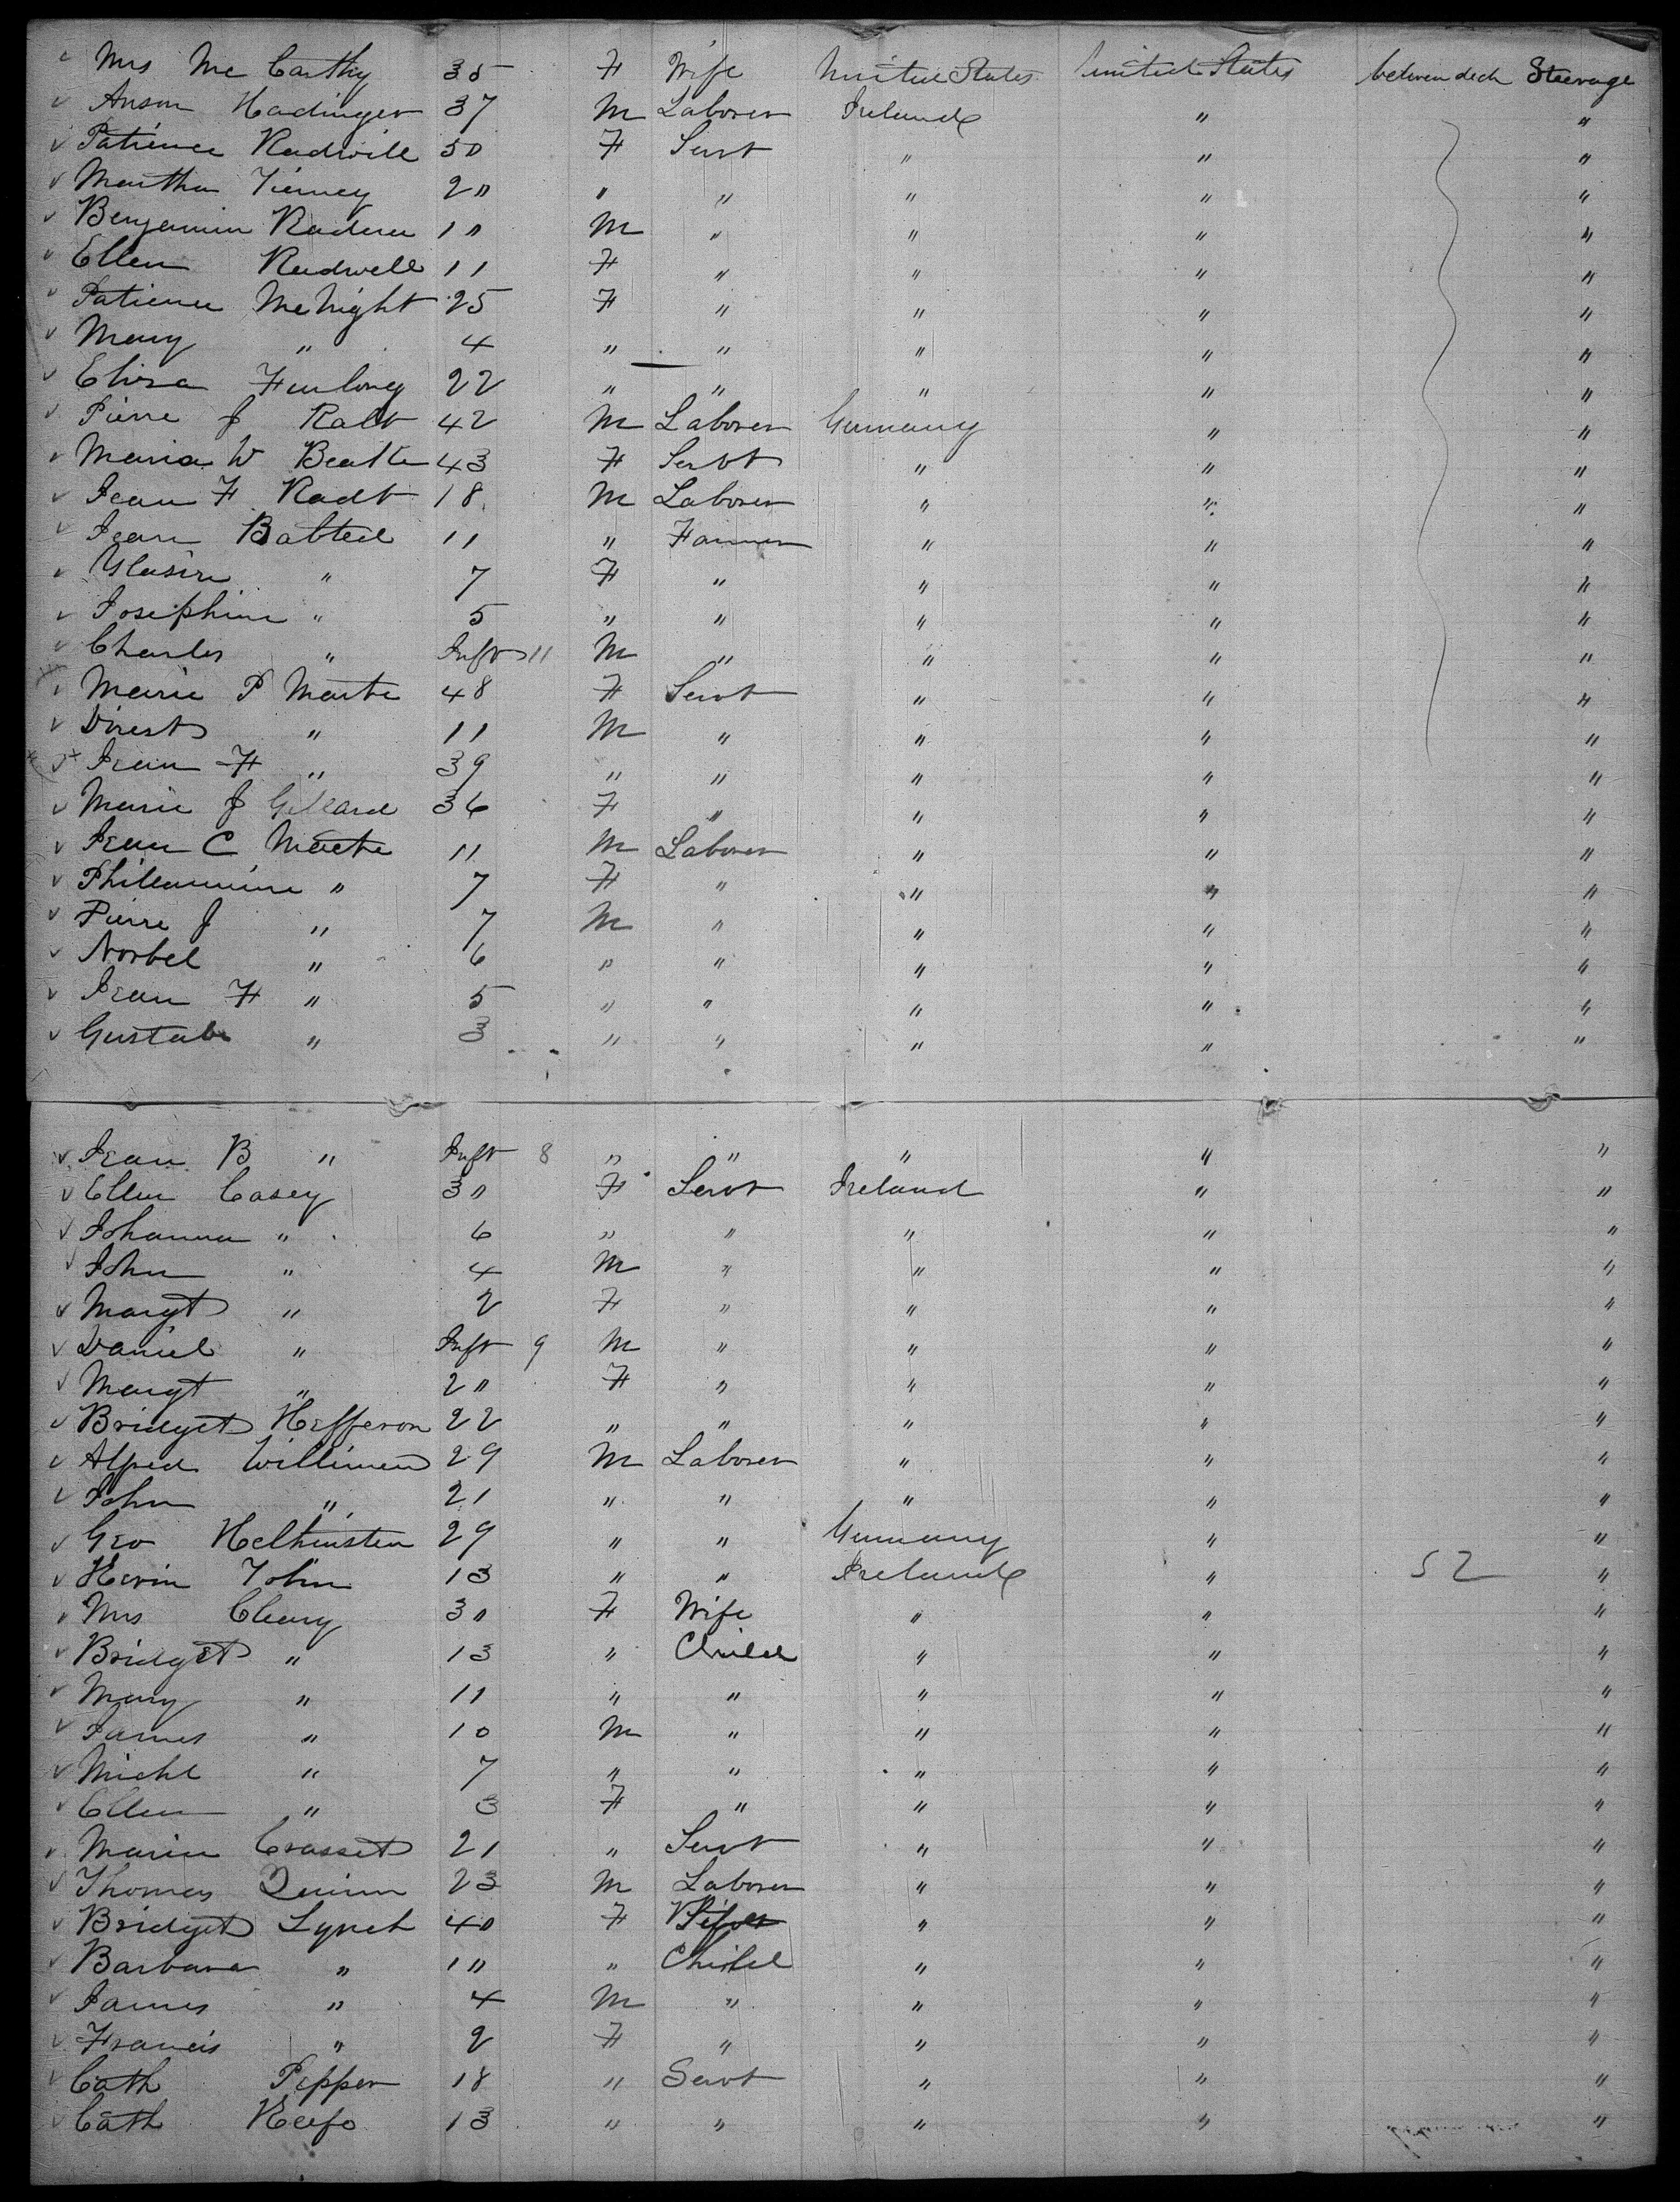 Mrs Mc Carthy 35 F Wife United States United States between deck Steerage
Anson Hadinger 37 M Laborer Ireland " "
Patience Radwill 50 F Servt " " "
Martha Tierney 20 " " " " "
Benjamin 10 M " " " "
Ellen Radwell 11 F " " " "
Patience McNight 25 F " " " "
Mary " 4 " " " " "
Eliza Furlong 22 " " " " "
Pierre J Ralt 42 M Laborer Germany " "
Maria W Beatte 43 F Servt " " "
Jean F Radt 18 M Laborer " " "
Jean Babted 11 " Farmer " " "
" 7 F " " " "
Josephine " 5 " " " " "
Charles " Inft 11 M " " " "
Marie P Marte 48 F Servt " " "
" 11 M " " " "
Jean F " 39 " " " " "
Marie J Gillard 36 F " " " "
Jean C Macte 11 M Laborer " " "
Phileamine " 7 F " " " "
Pierre J " 7 M " " " "
Norbel " 6 " " " " "
Jean F " 5 " " " " "
Gustabe " 3 " " " " "
Jean B " Inft 8 " " " " "
Ellen Casey 30 F Servt Ireland " "
Johanna " 6 " " " " "
John " 4 M " " " "
Margt " 2 F " " " "
Daniel " Inft 9 M " " " "
Margt " 20 F " " " "
Bridget Hefferon 22 " " " " "
Alfred Willimen 29 M Laborer " " "
John " 21 " " " " "
Geo Helhinsten 29 " " Germany " "
Kevin Tobin 13 " " Ireland " 52 "
Mrs Cleary 30 F Wife " " "
Bridget " 13 " Child " " "
Mary " 11 " " " " "
James " 10 M " " " "
Michl " 7 " " " " "
Ellen " 3 F " " " "
Maria Crasset 21 " Servt " " "
Thomas Quinn 23 M Laborer " " "
Bridget Lynch 40 F Wife " " "
Barbara " 10 " Child " " "
James " 4 M " " " "
Francis " 2 F " " " "
Cath Pepper 18 " Servt " " "
Cath Keefe 13 " " " " "